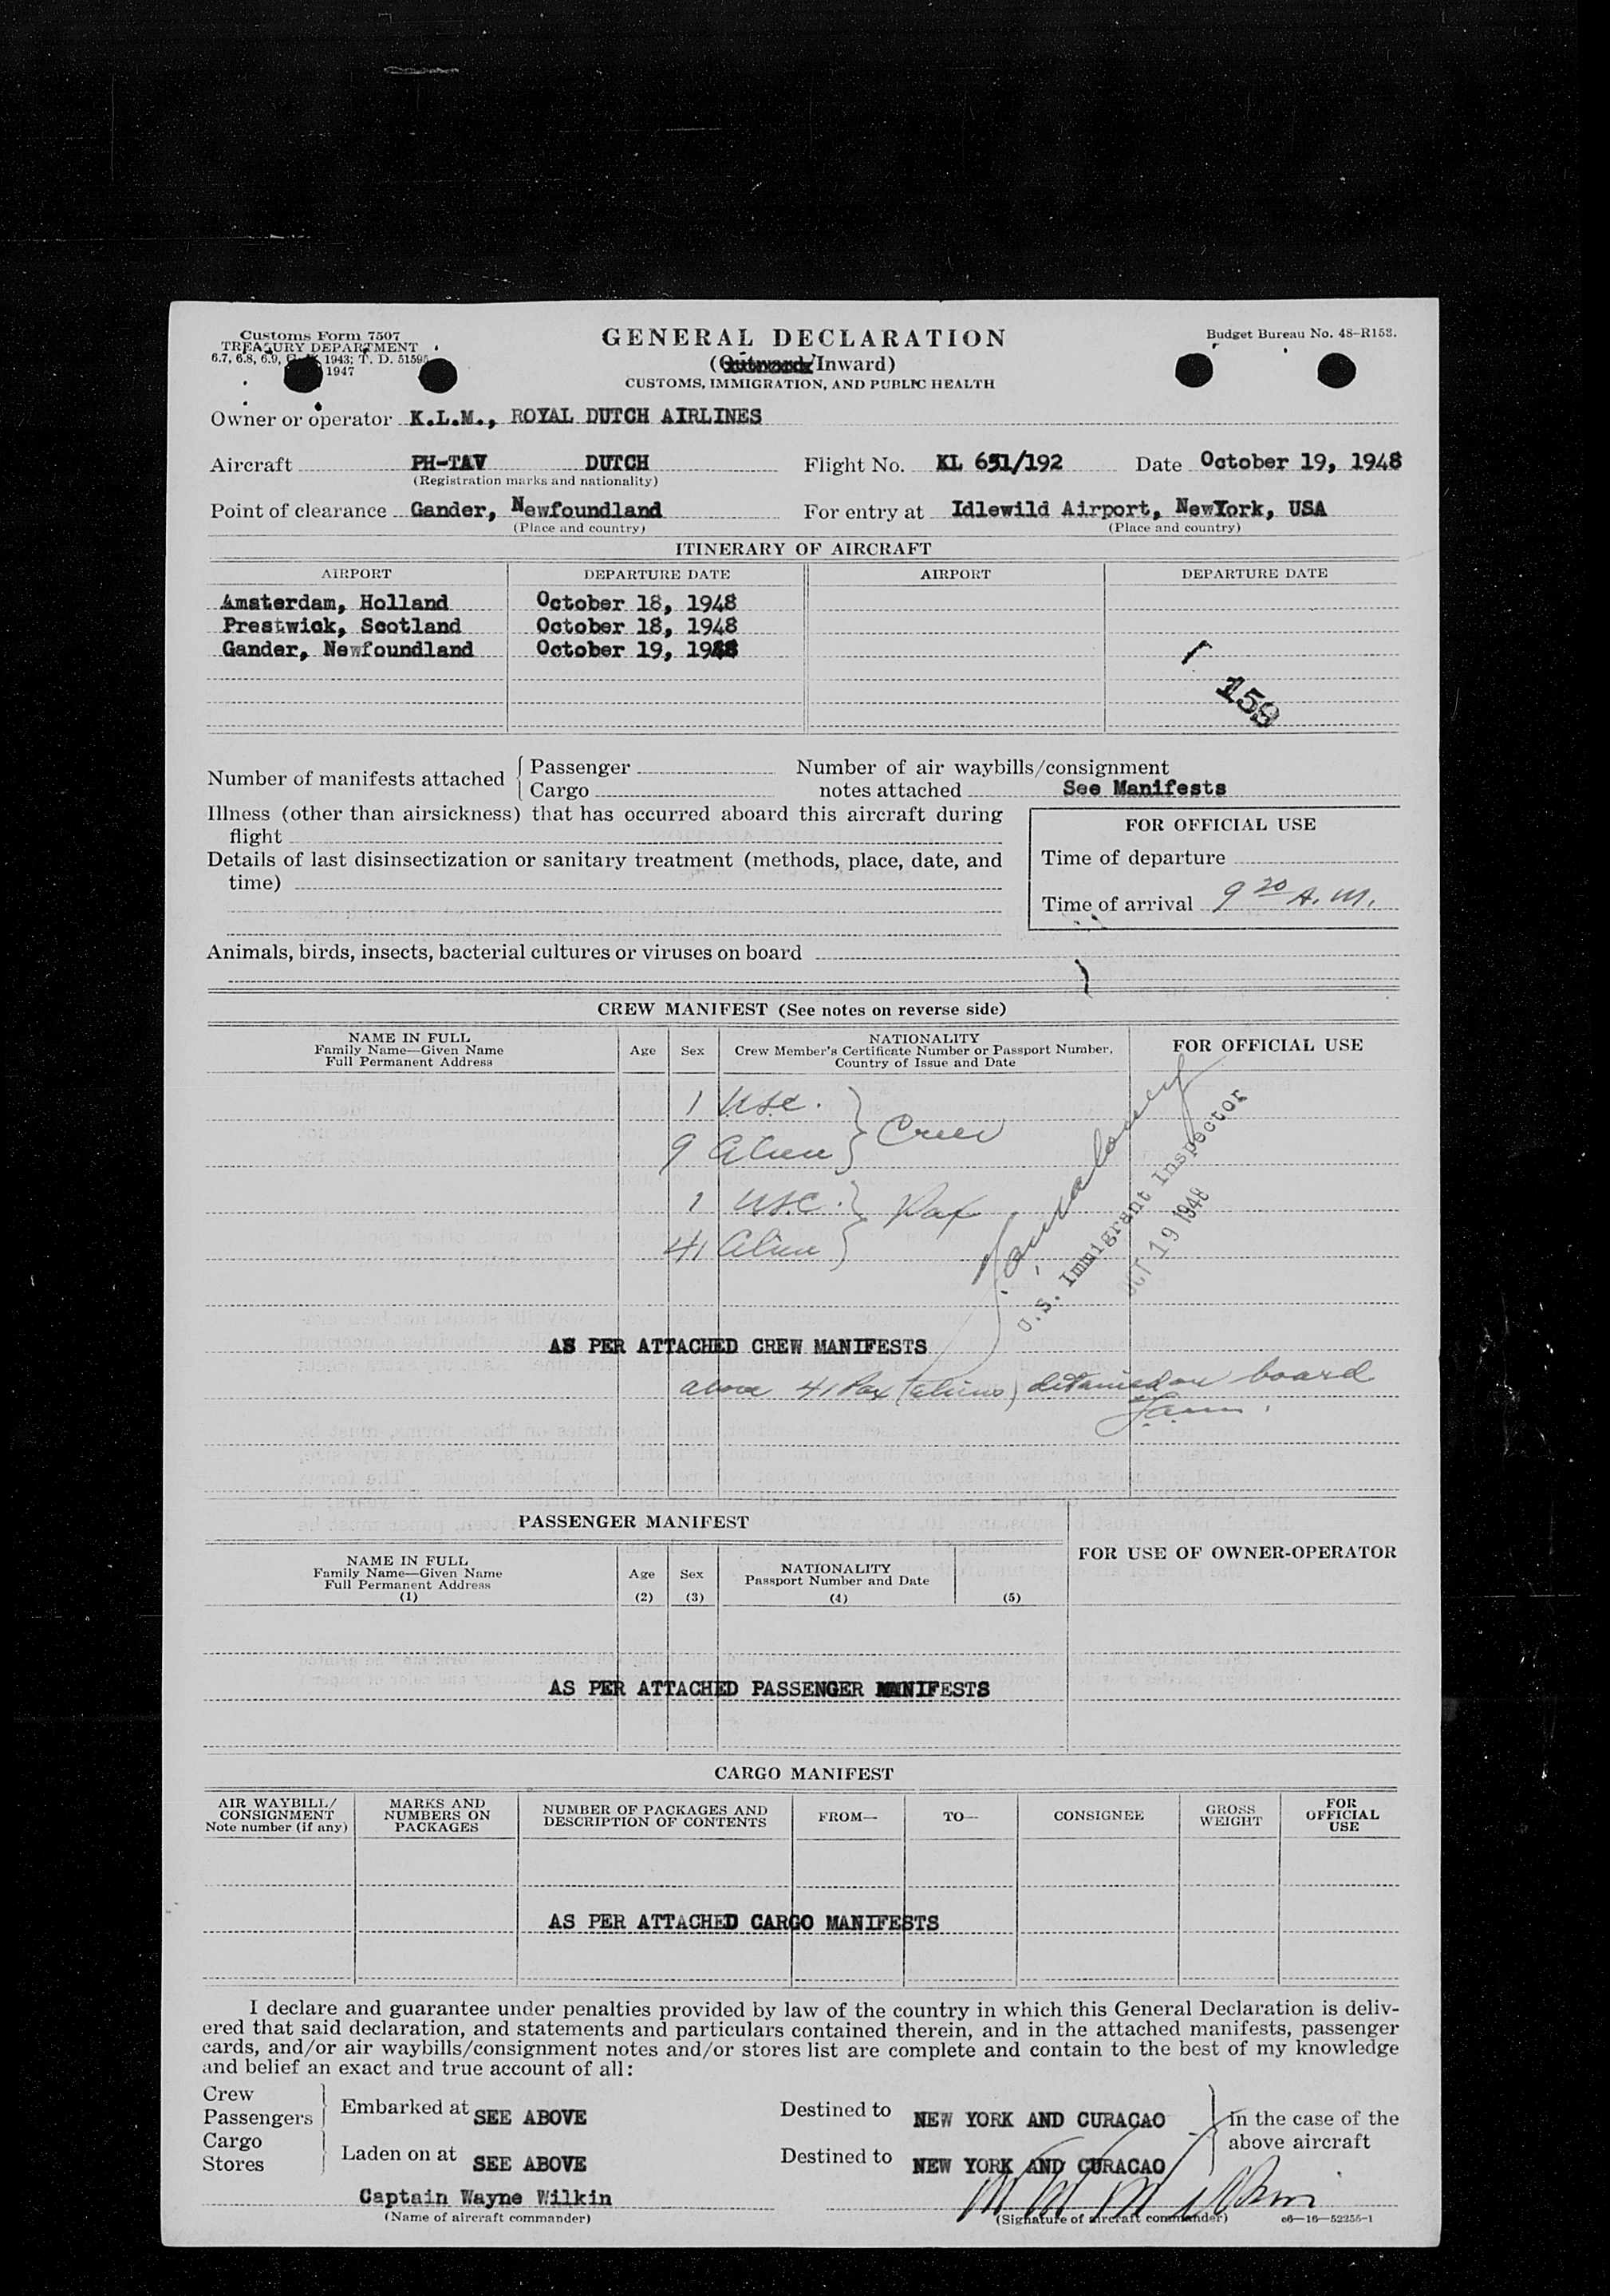 Customs Form 7507
TREASURY DEPARTMENT
6.7, 6.8, 6.9, 1943; T. D. 51595
1947
GENERAL DECLARATION
(Outward/Inward)
CUSTOMS, IMMIGRATION, AND PUBLIC HEALTH
Budget Bureau No. 48-R153.
Owner or operator K.L.M., ROYAL DUTCH AIRLINES
Aircraft PH-TAV DUTCH Flight No. KL 651/192 Date October 19, 1948
(Registration marks and nationality)
Point of clearance Gander, Newfoundland For entry at Idlewild Airport, NewYork, USA
(Place and country) (Place and country)
ITINERARY OF AIRCRAFT
AIRPORT DEPARTURE DATE AIRPORT DEPARTURE DATE
Amsterdam, Holland October 18, 1948
Prestwick, Scotland October 18, 1948
Gander, Newfoundland October 19, 1948
159
Number of manifests attached { Passenger
Cargo
Number of air waybills/consignment
notes attached See Manifests
Illness (other than airsickness) that has occurred aboard this aircraft during
flight
Details of last disinsectization or sanitary treatment (methods, place, date, and
time)
FOR OFFICIAL USE
Time of departure
Time of arrival 9 20 A.M.
Animals, birds, insects, bacterial cultures or viruses on board
CREW MANIFEST (See notes on reverse side)
NAME IN FULL
Family Name—Given Name
Full Permanent Address
Age
Sex
NATIONALITY
Crew Member's Certificate Number or Passport Number,
Country of Issue and Date
FOR OFFICIAL USE
1 U.S.C. } Crew
9 Alien
1 U.S.C. } Pax
41 Alien
U.S. Immigrant Inspector
OCT 19 1948
AS PER ATTACHED CREW MANIFESTS
above 41 Pax (aliens) detained on board
PASSENGER MANIFEST
FOR USE OF OWNER-OPERATOR
NAME IN FULL
Family Name—Given Name
Full Permanent Address
(1)
Age
(2)
Sex
(3)
NATIONALITY
Passport Number and Date
(4)
(5)
AS PER ATTACHED PASSENGER MANIFESTS
CARGO MANIFEST
AIR WAYBILL/
CONSIGNMENT
Note number (if any)
MARKS AND
NUMBERS ON
PACKAGES
NUMBER OF PACKAGES AND
DESCRIPTION OF CONTENTS
FROM—
TO—
CONSIGNEE
GROSS
WEIGHT
FOR
OFFICIAL
USE
AS PER ATTACHED CARGO MANIFESTS
I declare and guarantee under penalties provided by law of the country in which this General Declaration is deliv-
ered that said declaration, and statements and particulars contained therein, and in the attached manifests, passenger
cards, and/or air waybills/consignment notes and/or stores list are complete and contain to the best of my knowledge
and belief an exact and true account of all:
Crew
Passengers } Embarked at SEE ABOVE Destined to NEW YORK AND CURACAO
Cargo
Stores } Laden on at SEE ABOVE Destined to NEW YORK AND CURACAO
in the case of the
above aircraft
Captain Wayne Wilkin
(Name of aircraft commander) (Signature of aircraft commander) e6—16—52255-1